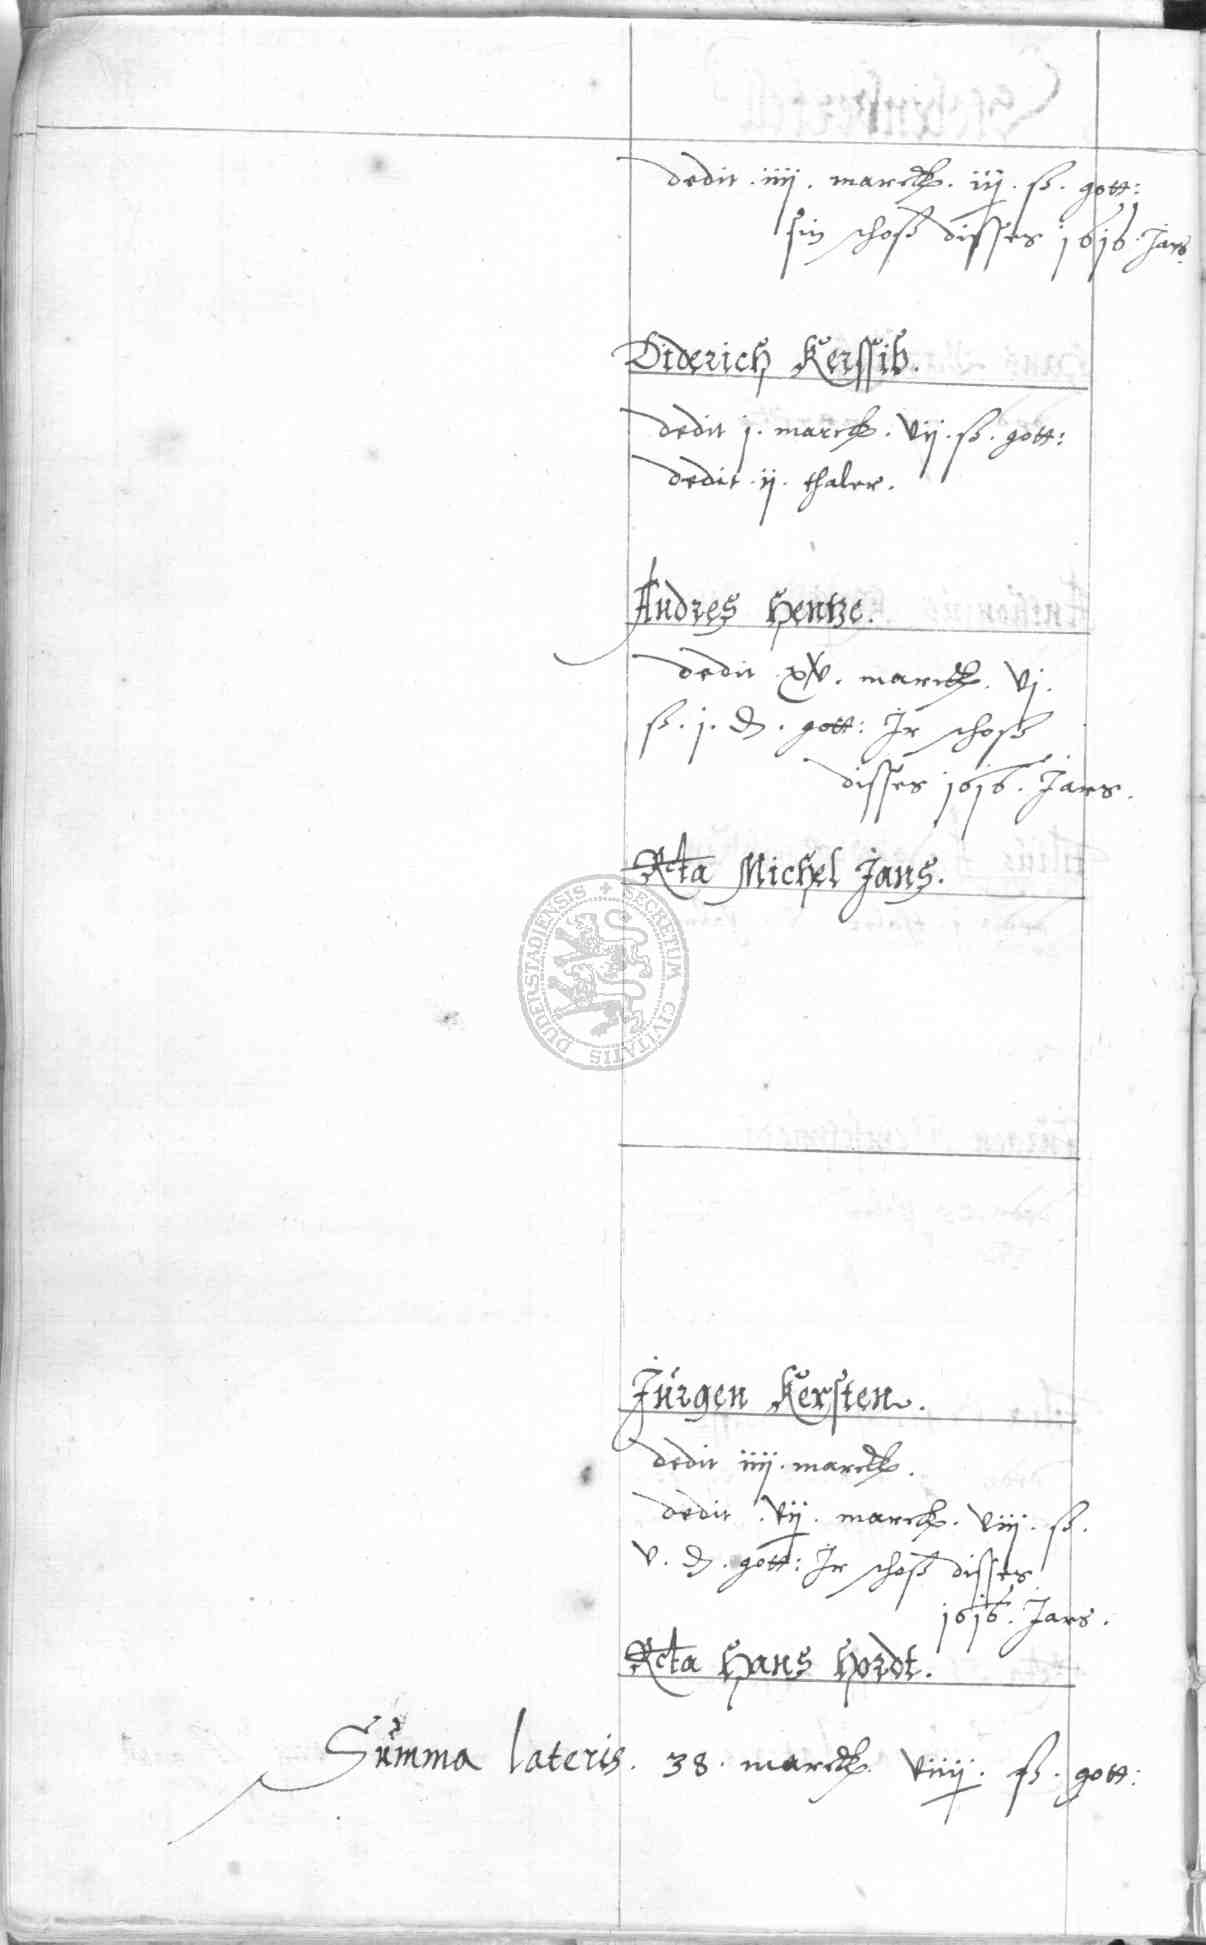 dedit . iiij . marck . iij . ß . gott:
sin schoß disses 1616 Jars
Diderich Kerssib.
dedit j . marck . vij . ß . gott:
dedit . ij . thaler .
Andres Hentze.
dedit xv . marck . vj .
ß . j . d . gott: Jr schoß
disses 1616 . Jars .
Rcta Michel Jans .
SECRETUM CIVITATIS DUDERSTADIENSIS
Jürgen Kersten .
dedit iiij . marck .
dedit . vij . marck . viij . ß .
v . d . gott: Jr schoß disses
1616 . Jars .
Rcta Hans Hordt .
Summa lateris . 38 . marck . viiij . ß . gott: